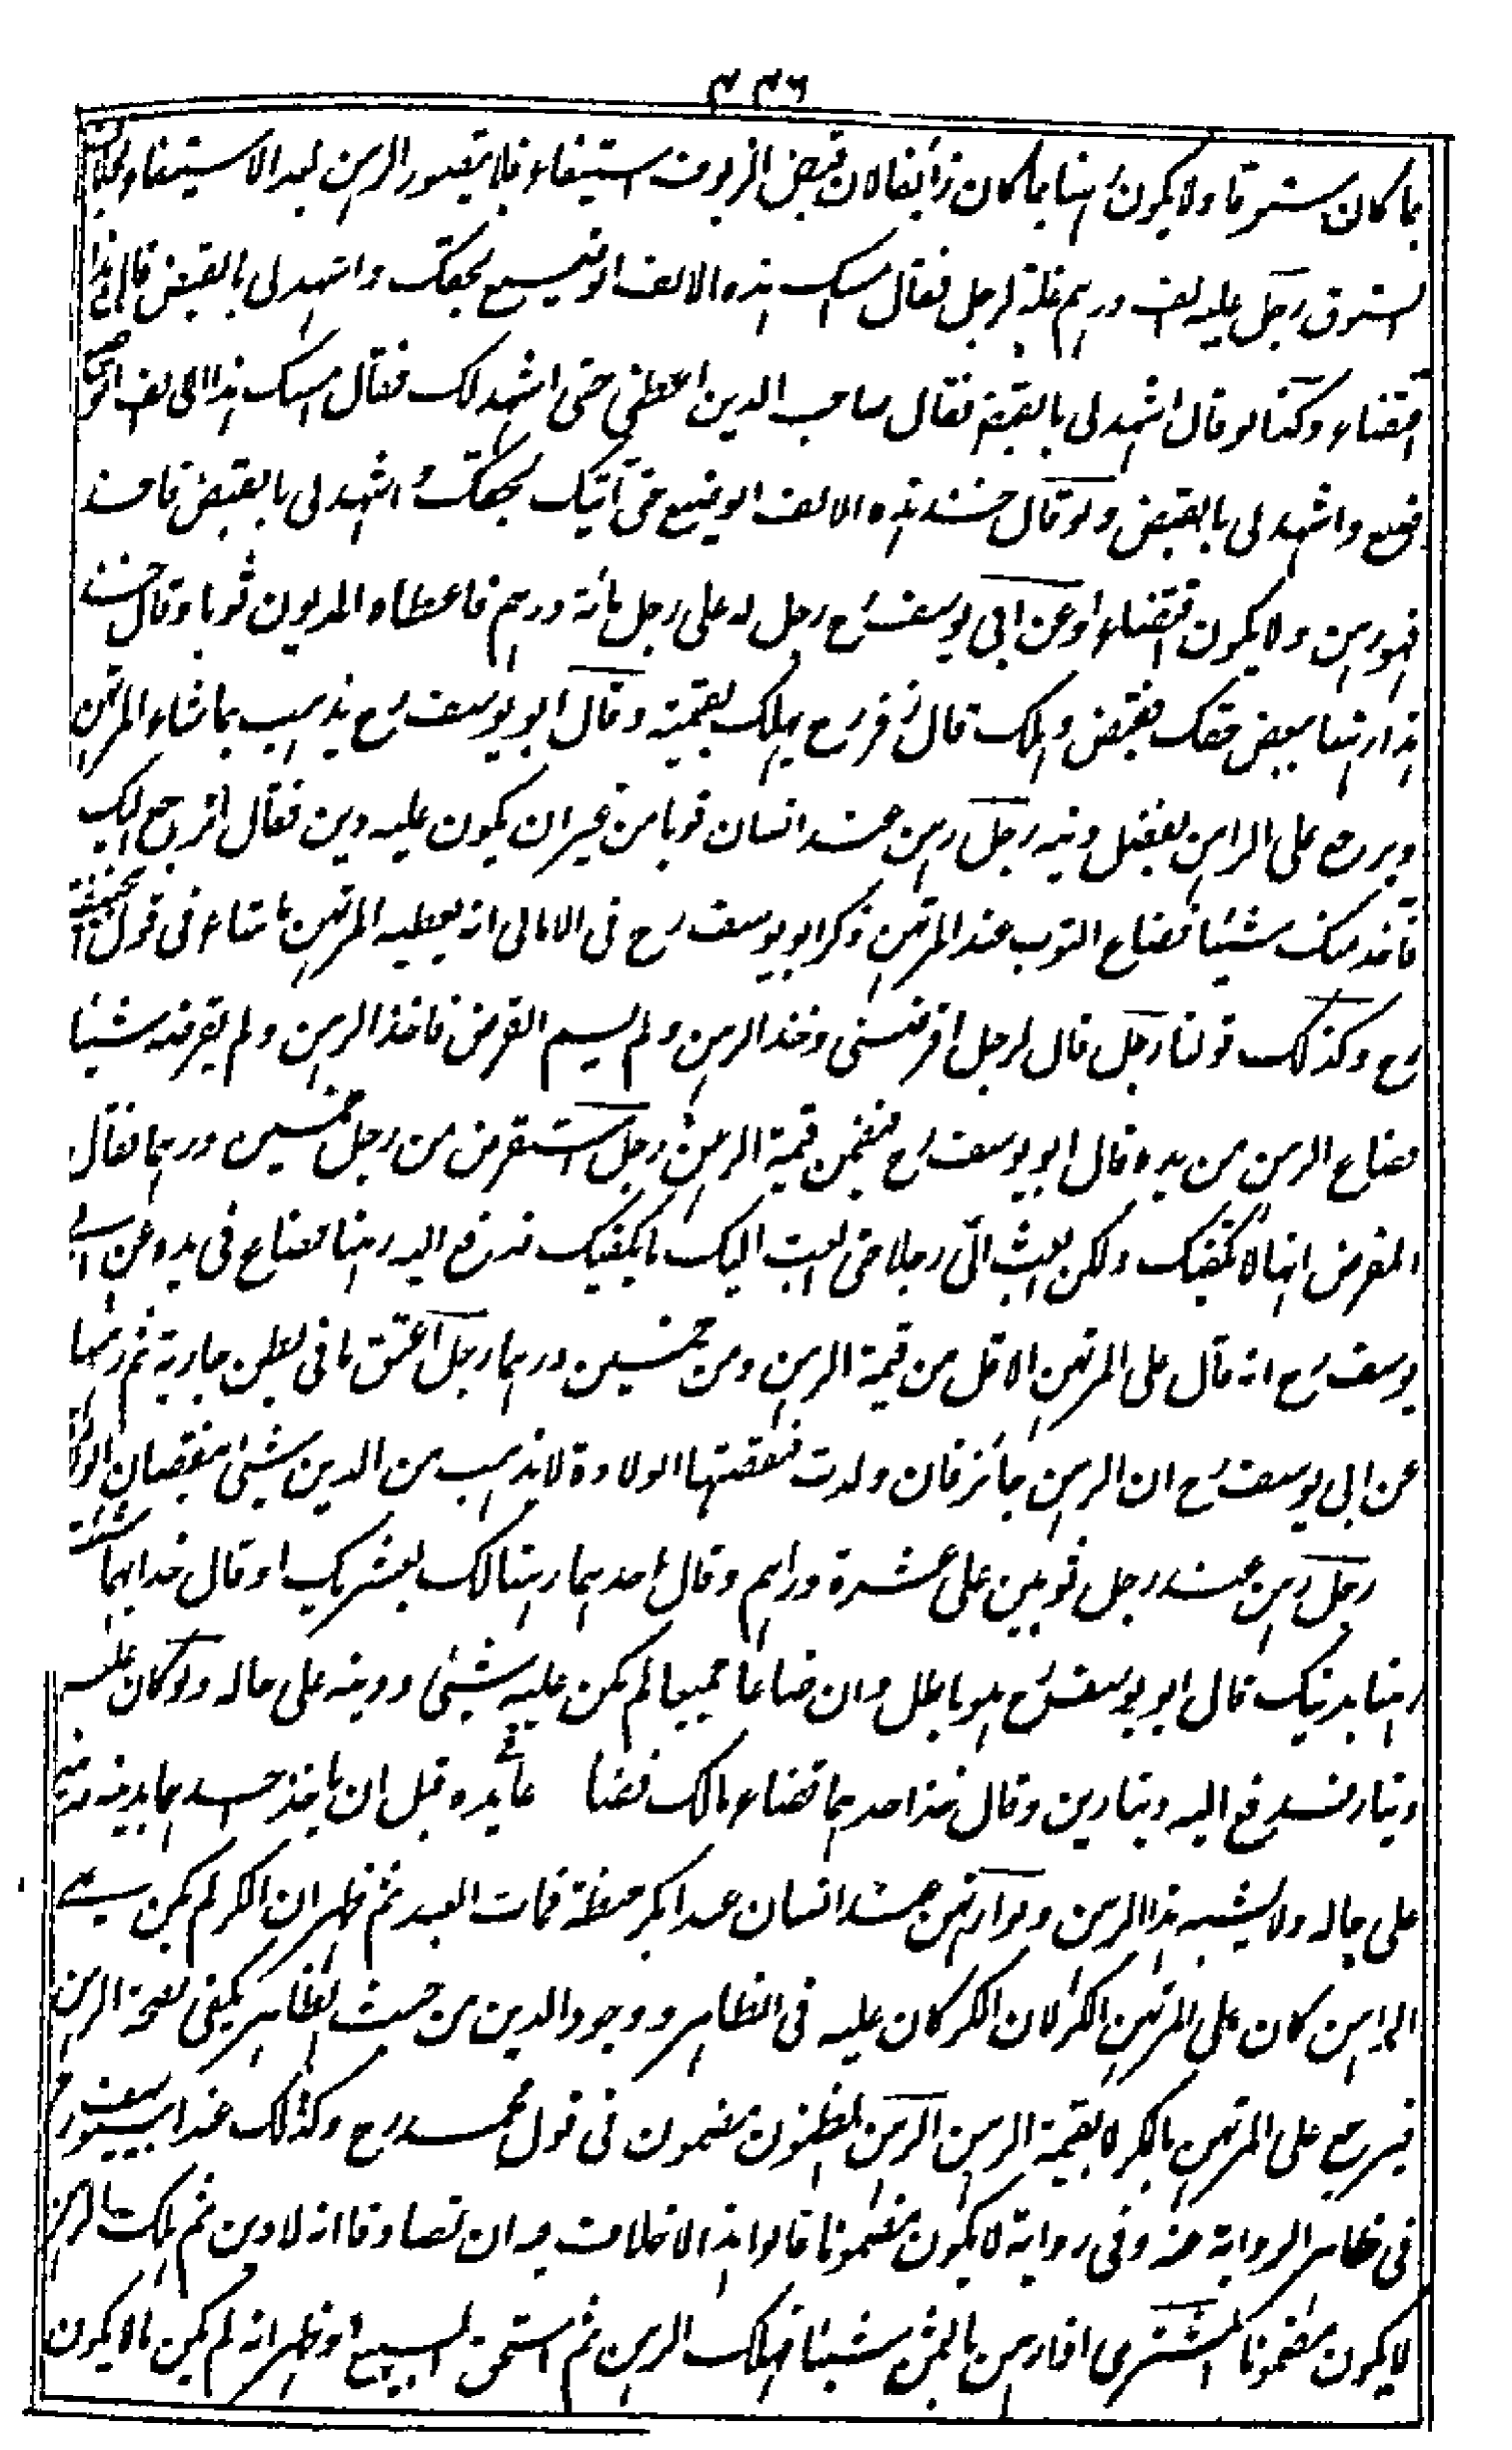 ٤٣٦
بما كان ستوقا ولا يكون رهنا بما كان زائفا لان قبض الزيوف استيفاء فلا يتصور الرهن بعد الاستيفاء بخلاف
الستوق رجل عليه الف درهم غلة لرجل فقال امسك هذه الالف الوضح بحقك واشهد لى بالقبض قال هذا
اقتضاء وكذا لو قال اشهد لى بالقبض فقال صاحب الدين اعطنى حتى اشهد لك فقال امسك هذا الالف الوضح
واشهد لى بالقبض ولو قال خذ هذه الالف الوضح حتى آتيك بحقك و اشهد لى بالقبض فاخذ
فهو رهن ولا يكون اقتضاء وعن ابى يوسف رح رجل له على رجل مائة درهم فاعطاه المديون ثوبا وقال خذ
هذا رهنا ببعض حقك فقبض وهلك قال زفر رح يهلك بقيمته وقال ابو يوسف رح يذهب بما شاء المرتهن
ويرجع على الراهن بفضل دينه رجل رهن عند انسان ثوبا من غير ان يكون عليه دين فقال ارجع اليك
فآخذ منك شيئا فضاع الثوب عند المرتهن ذكر ابو يوسف رح فى الامالى انه يعطيه المرتهن ما شاء فى قول ابى حنيفة
رح وكذلك قولنا رجل قال لرجل اقرضنى وخذ الرهن ولم يسم القرض فاخذ الرهن ولم يقرضه شيئا
فضاع الرهن من يده قال ابو يوسف رح فيضمن قيمة الرهن رجل استقرض من رجل خمسين درهما فقال
المقرض انها لا تكفيك ولكن ابعث الىّ رجلا حتى ابعث اليك ما يكفيك فدفع اليه رهنا فضاع فى يده عن ابى
يوسف رح انه قال على المرتهن الاقل من قيمة الرهن ومن خمسين درهما رجل اعتق ما فى بطن جارية ثم رهنها
عن ابى يوسف رح ان الرهن جائز فان ولدت فنقصتها الولادة لا يذهب من الدين شيئ بنقصان الولادة
رجل رهن عند رجل ثوبين على عشرة دراهم وقال احدهما رهنا لك بعشرتك او قال خذ ايهما شئت
رهنا بدينك قال ابو يوسف رح هو باطل وان ضاعا جميعا لم يكن عليه شيئ ودينه على حاله ولو كان عليه
دينار فدفع اليه دينارين وقال خذ احدهما قضاء مالك فضاعا فى يده قبل ان ياخذ احدهما بدينه فدينه
على حاله ولا يشبه هذا الرهن ولو ارتهن عند انسان عبدا بكر حنطة فمات العبد ثم ظهر ان الكر لم يكن على
الراهن كان على المرتهن الكر لان الكر كان عليه فى الظاهر ووجود الدين من حيث الظاهر يكفى لصحة الرهن
فيرجع على المرتهن بالكر لا بقيمة الرهن الرهن المظنون مضمون فى قول محمد رح وكذلك عند ابى يوسف رح
فى ظاهر الرواية عنه وفى رواية لا يكون مضمونا قالوا هذا الاختلاف بعد ان تصادقا انه لا دين ثم هلك الرهن
لا يكون مضمونا المشترى اذا رهن بالثمن شيئا فهلك الرهن ثم استحق المبيع او ظهر انه لم يكن مالا يكون